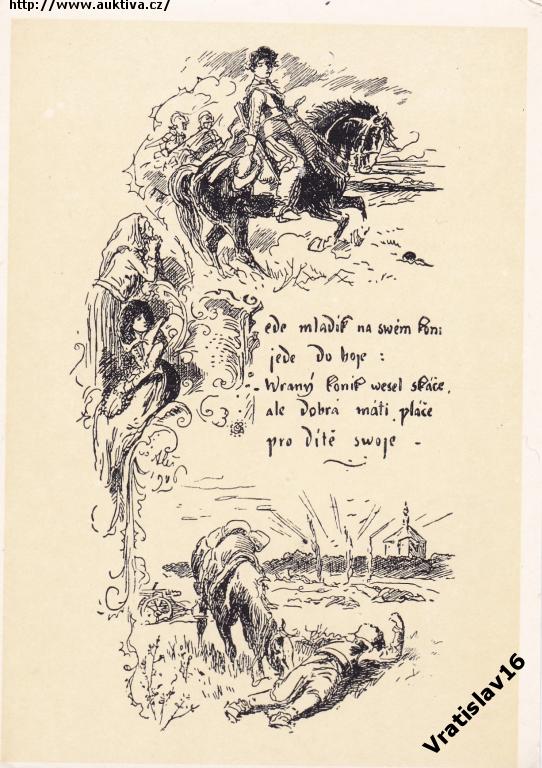 http://www.auktiva.cz/
Jede mladík na swém koni
jede do boje :
Wraný koník wesel skáče,
ale dobrá máti pláče
pro dítě swoje -
Vratislav16